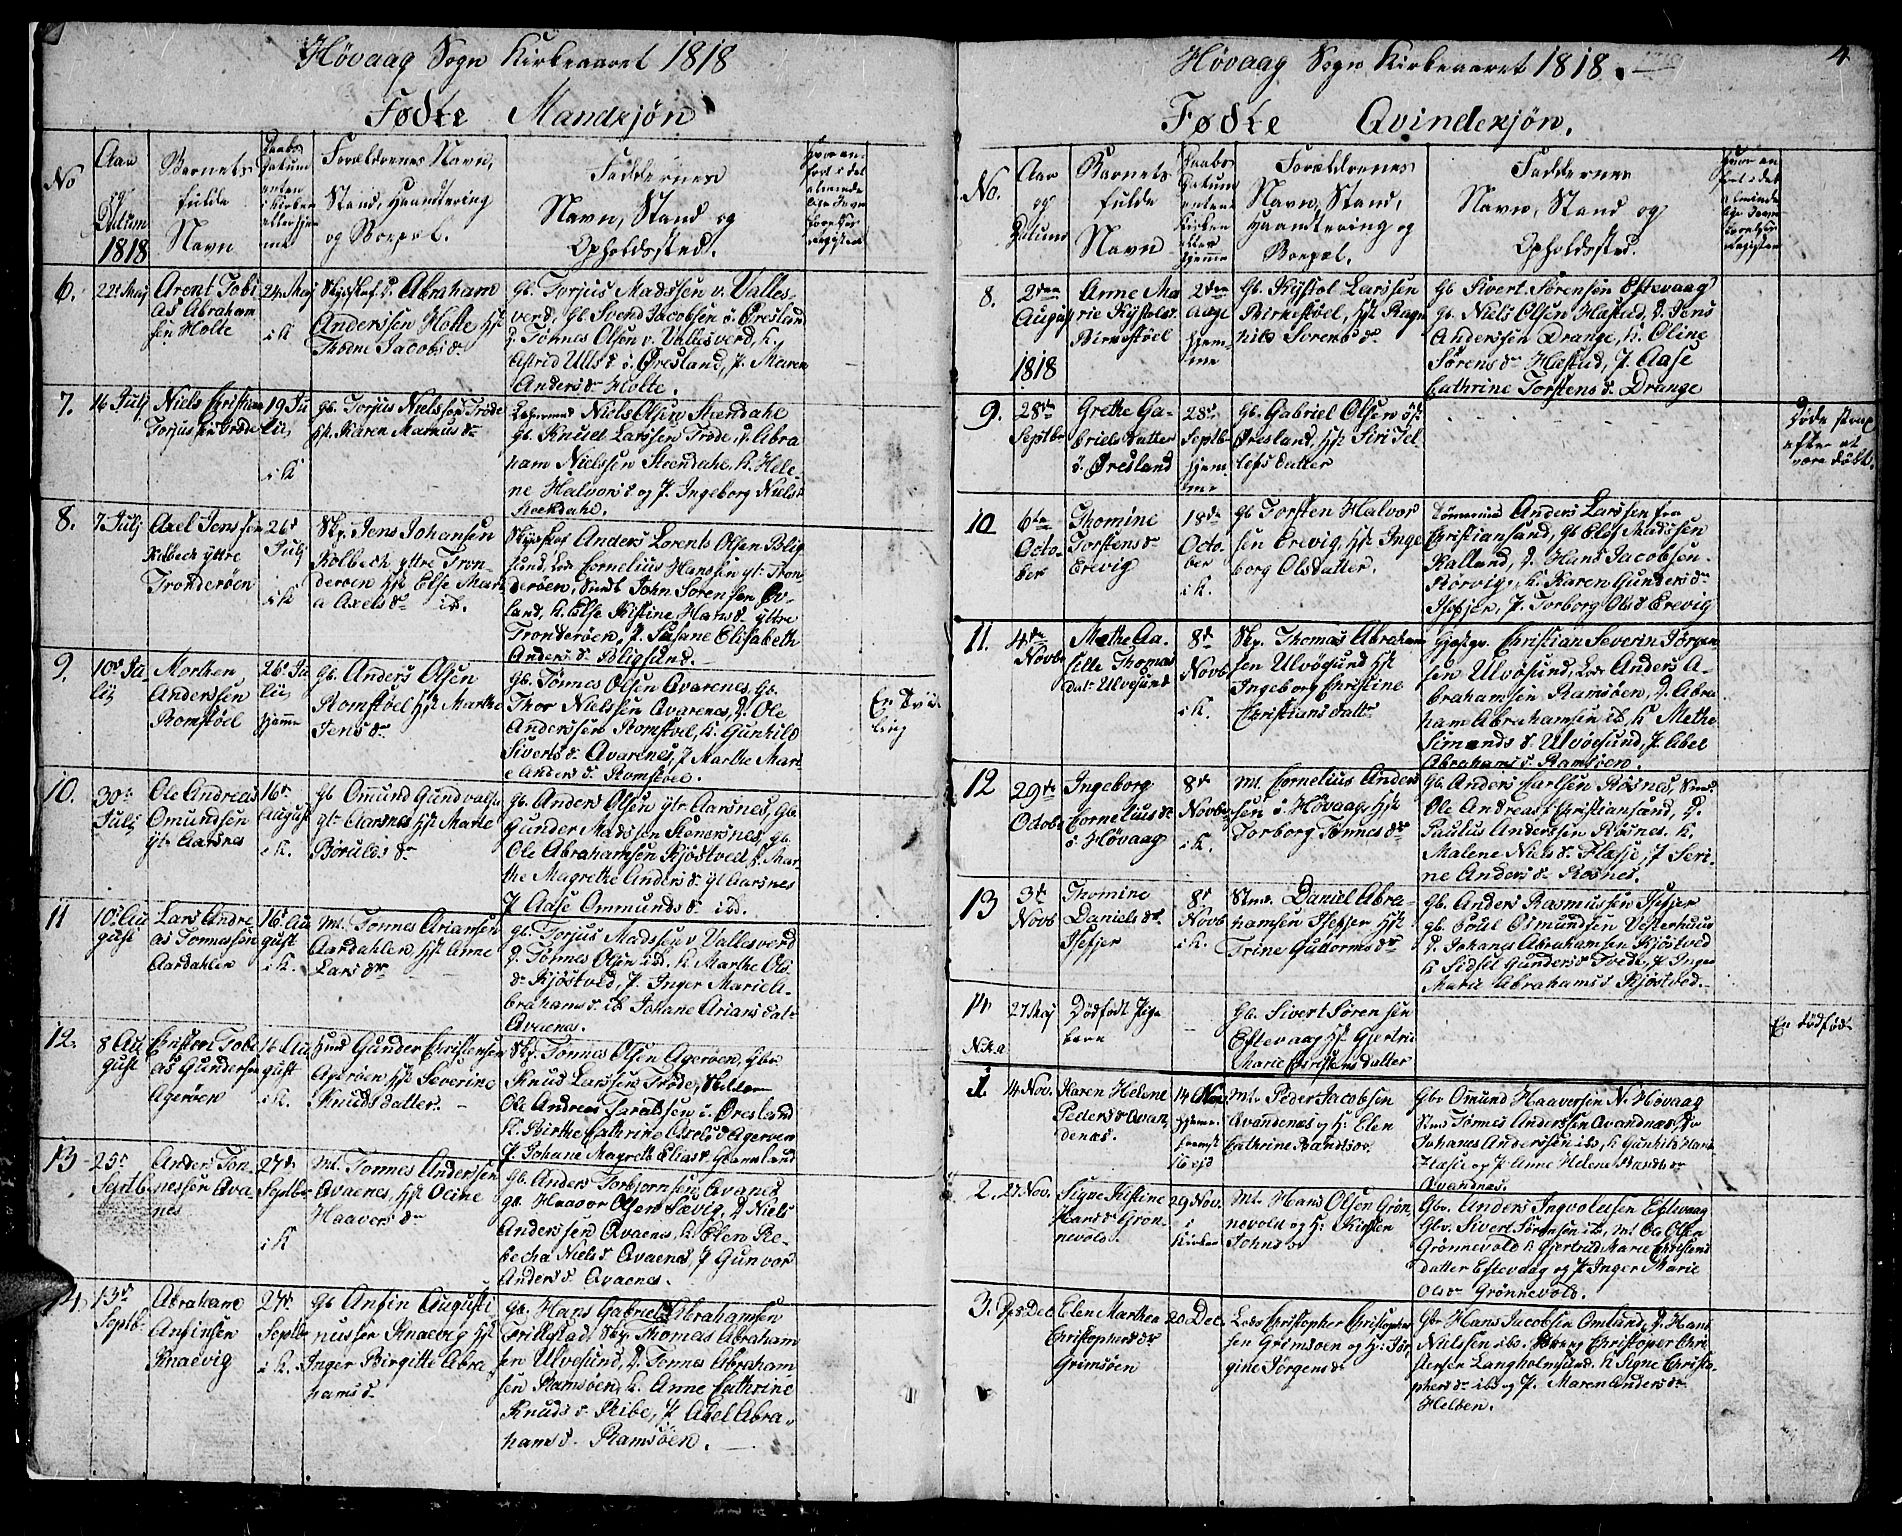 Høvaag Sogn Kirkeaaret 1818
Fødte Mandkjøn
No
Aar
og
Datum
1818
Barnets
fulde
Navn
Daabs
Datum
enten
i Kirken
eller hjem
me
Forældrenes Navn,
Stand, Haandtering
og Boepæl.
Faddernes
Navn, Stand og
Opholdssted.
6.
22de Maj
Arent Tobi
as Abraham
sen Holte
24 Maj
i K
Abraham
Anderssen Holte
Thodne Jacobsdr
Gb. Torjus Madssen v. Valles-
verd, Gb. Svend Jacobsen ö. Øresland
Tønnes Olsen v. Vallesverd, K.
Astrid Ulls d. ö. Øresland, P. Maren
Anders dr Holte.
7.
16 Julj
Niels Christian
Torjussen Trøde
19 Ju
lij
i K
Gb. Torjus Nielssen Trøde
Hst. Karen Markus dr
Niels Olsen Steendahl
Gb. Knud Larssen Trøde, D. Abra
ham Nielssen Steendahl, K. Hele-
ne Halvors d og P. Ingeborg Niels d
Steendahl.
8.
7 Julj
Axel Jenssen
Kolbech yttre
Trønderöen
26d
Julj
i K
Skp. Jens Johansen
Kolbech yttre Trøn-
deröen Hst Else Mari
a Axels dr ib.
Anders Lorents Olsen Blig
sund, Cornelius Hanssen yt. Tron
deröen, John Sörensen
land, K. Else Kistine Hans d. yttre
Tronderöen, P. Susane Elisabeth
Anders d. Bligsund.
9.
10d Ju
lij
Morthen
Anderssen
Romstöel
26d Ju
lii
hjemme
Gb. Anders Olsen
Romstöel Hst Marthe
Jens dr
Gb. Tönnes Olsen Qvarenes, Gb.
Thor Nielssen Qvarenes, D. Ole
Anderssen Romstöel, K. Gunhild
Siverts d. Qvarenes, P. Marthe Mari
e Anders d. Romstöel.
En Tvil
ling
10.
30d
Julj
Ole Andreas
Omundsen
ytr Aarsnes
16d
August
i K.
Gb Omund Gundvalsen
ytr Aarsnes Hst Marie
Börulds dr
Gb. Anders Olsen ytr Aarsnes, Gb.
Gunder Madssen Stenersnes, Gb.
Ole Abrahamsen Kjöstved K. Mar-
the Magrethe Anders d. yt Aarsnes
P Aase Ommunds d. ibd.
11
10d Au
gust
Lars Andre
as Tonnessen
Aardahlen
16d Au
gust
i K.
Mt. Tonnes Ariansen
Aardahlen, Hst. Anne
Lars dr
Gb. Torjus Madssen v. Vallesverd
D. Tönnes Olsen ibd. K Marthe Ols
dr Kjöstved, P. Inger Marie A-
brahams d. ib Johane Arians datr
Qvaenes.
12.
8 Au
gust
Tobi
as Gundersen
Ageröen
16 Au
gust
i K.
Gunder Christensen
Ageröen Hst Severine
Knuds datter.
Skp. Tönnes Olsen Ageröen, Gbr
Knud Larssen Trøde,
Ole Andreas Taraldsen ö. Øresland
K. Birthe Cathrine Axels d Ageröen
P Johane Magrete Elias d.
13
25d
Septb
Anders Ton
nessen Qva
nes
27d
Septbr
i K
Mt. Tonnes Andersen
Qvaenes, Hst Ocine
Haavers dr
Gb. Anders Torbjornsen Qvanes
gb. Haavor Olsen Sævig, D Niels
Anderssen Qvaenes, K. Elen Re-
becha Niels d. Qvaenes, P Gunvor
Anders d. Qvaenes.
14
13d
Septb
Abraham
Anfinsen
Knaevig
27d
Septb
i K.
Gb Anfin Augusti
nussen Knaevig Hst
Inger Birgitte Abra
hams d.
Gb. Hans Gabriel Abrahamsen
Trillestad, Skp. Thomas Abraham
sen Ulvesund, D. Tonnes Abraham
sen Ramsöen, K. Anne Cathrine
Knuds d. Kibe, P. Abel Abra
hams d. Ramsöen.
Høvaag Sogn Kirkeaaret 1818.
4
Fødte Qvindekjøn.
No.
Aar
og
Datum
Barnets
fulde
Navn
Daabs
Datum
enten i
Kirken
eller
hjemme
Forældrenes
Navn, Stand,
Haandtering og
Boepæl.
Faddernes
Navn, Stand og
Opholdssted.
8.
2den
August
1818
Anne Ma
rie Kistols d
Birkestöel
2den
Augs
hjem-
me
Gb. Kistol Larssen
Birkestöel, Hst. Ragn
hild Sorens dr
Gb Sivert Sörensen Eftevaag
Gb. Niels Olsen Hæstad, D. Jens
Anderssen Drange, K. Oline
Sörens dr Hæstad, P. Aase
Cathrine Torstens d. Drange
9.
28de
Septbr
Grethe Ga-
briels datter
ö. Øresland
28d
Septbr
hjem-
me
Gb. Gabriel Olsen ös
Øresland, Hst Siri Tel
lefs datter
Døde strax
efter at
være døbt.
10
6te
Octo-
ber
Thomine
Torstens dr
Crevig
18de
Octo-
ber
i K.
Gb Torsten Halvor
sen Crevig, Hst Inge
borg Olsdatter.
Anders Larssen fra
Christiansand, Gb Elef Madssen
Kalland, D. Hans Jacobsen
Körvig, K. Karen Gunders dr
Isefjer, P. Torborg Ols d Crevig
11.
4de
Novb
Methe Aa-
selle Thomas
datr Ulvesund
8d
Novb
i K.
Skp. Thomas Abraham
sen Ulvösund Hst
Ingeborg Christine
Christians dattr
Christian Severin Jörgen
sen Ulvösund, Anders A-
brahamsen Ramsöen, D. Abra
ham Abrahamsen ib, K Methe
Simonds d. Ulvöesund, P Abel
Abrahams d. Ramsöen.
12
29de
Octobr
Ingeborg
Cornelius dr
ö. Høvaag
8d
Novbr
i K.
Mt. Cornelius Anders
sen ö. Høvaag, Hst
Torborg Tönnes dr
Gb. Anders Carlsen Rösnes,
Ole Andreas Christiansand, D.
Paulus Anderssen Rösnes. K.
Malene Niels d. Flæsje, P Seri-
ne Anders d. Rosnes.
13
3d
Novb
Thomine
Daniels dr
Isefjer
8d
Novb
i K.
Daniel Abra-
hamsen Isefjer Hst
Trine Guttorms dr
Gb. Anders Rasmussen Isefjer
gb. Poul Osmundsen Vesterhuus
D. Johanes Abrahamsen Kjöstved
K Sidsel Gunders d Tvede, P Inger
Marie Abrahams d Kjöstved.
14
27 Maj
Dødfødt Pige
barn
Gb. Sivert Sören sen
Eftevaag Hst Gjertru
Marie Christens datter
En dödföd
1.
14 Nov.
Karen Helene
Peders d Qvan
denes.
14 Nov
hjemme
Mt. Peder Jacobsen
Qvandenes og H: Elen
Cathrine
Gbr Omund Haaversen N. Høvaag
Tönnes Anderssen Qvandnæs D:
Johanes Anderssen ibd, K Gunhild
Flæsje og P. Anne Helene
Qvandnes.
2.
27 Nov.
Signe Kistine
Hans d Grøn-
nevold.
29 Nov.
i
Kirken
Mt. Hans Olsen Grøn-
nevold og H: Kirsten
Johns dr
Gbr. Anders Ingvoldsen Eftevaag
Gbr. Sivert Sörensen ib, Mt Ole Olsen
Grönnevold K Gjertrud Marie Christens
datter Eftevaag og P. Inger Marie
Olsdr Grönnevold.
3.
Dec
Elen Marthea
Christophers dr
Grimsöen
20 Dec.
Christopher Christopher
sen Grimsöen og H: Jör
gine Jörgens d
Gbr Hans Jacobsen Omlund, D. Hans
Nielssen ibd. Christoper Chri-
stensen Langholmsund. K Signe Christo-
phers dr ibd og P. Maren Anders dr
Helden.